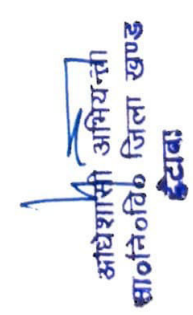 अधिशासी अभियन्ता
प्रा०नि०वि० जिला खण्ड
इटावा